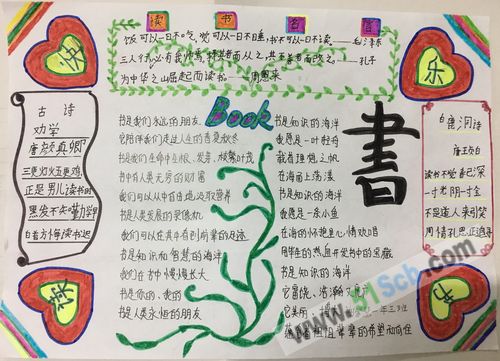 读书名言
饭可以一日不吃，觉可以一日不睡，书不可以一日不读。——毛泽东
三人行，必有我师焉，择善者而从之，其不善者而改之。——孔子
为中华之崛起而读书——周恩来
快
乐
古诗
劝学
唐 颜真卿
三更灯火五更鸡
正是男儿读书时
黑发不知勤学早
白首方悔读书迟
Book
书是我们永远的朋友
它陪伴我们走过人生的春夏秋冬
书是我们生命中生根、发芽、枝繁叶茂
书中有人类无穷的财富
我们可以从中自由地汲取营养
书是人类发展的录像机
我们可以在其中看到前辈的足迹
书是知识和智慧的海洋
我们在书中慢慢长大
书是你的、我的
书是人类永恒的朋友
书是知识的海洋
我愿是一叶轻舟
载着理想之帆
在海面上荡漾
书是知识的海洋
我愿是一条小鱼
在海的怀抱里心情吠唱
用毕生的热血开发书中的宝藏
书是知识的海洋
它富饶、浩瀚
它美丽
一年三班
辈辈的希望和向往
書
白鹿洞诗
唐 王贞白
读书不觉春已深
一寸光阴一寸金
不是道人来引笑
周情孔思正追寻
读
书
www.51Scb.com